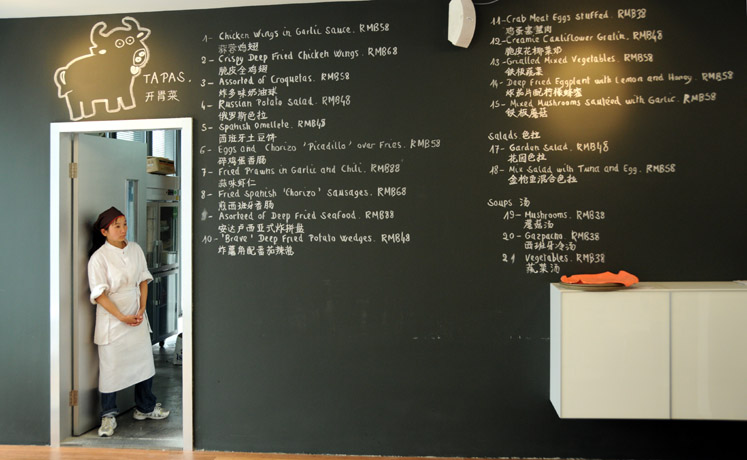 TAPAS.
开胃菜
1- Chicken Wings in Garlic Sauce. RMB58
蒜蓉鸡翅
2- Crispy Deep Fried Chicken Wings. RMB68
脆皮全鸡翅
3- Assorted of Croquetas. RMB58
炸多味奶油球
4- Russian Potato Salad. RMB48
俄罗斯色拉
5- Spanish Omellete. RMB48
西班牙土豆饼
6- Eggs and Chorizo 'Picadillo' over Fries. RMB58
碎鸡蛋香肠
7- Fried Prawns in Garlic and Chili. RMB88
蒜味虾仁
8- Fried Spanish 'Chorizo' Sausages. RMB68
煎西班牙香肠
9- Asorteed of Deep Fried Seafood. RMB88
安达卢西亚式炸拼盘
10- 'Brave' Deep Fried Potato Wedges. RMB48
炸薯角配番茄辣酱
11- Crab Meat Eggs stuffed. RMB38
鸡蛋塞蟹肉
12- Creamie Cauliflower Gratin. RMB48
脆皮花椰菜奶
13- Grialled Mixed Vegetables. RMB58
铁板蔬菜
14- Deep Fried Eggplant with Lemon and Honey. RMB58
炸茄片配柠檬蜂蜜
15- Mixed Mushrooms Sauteéd with Garlic. RMB58
铁板蘑菇
Salads 色拉
17- Garden Salad. RMB48
花园色拉
18- Mix Salad with Tuna and Egg. RMB58
金枪鱼混合色拉
Soups 汤
19- Mushrooms. RMB38
蘑菇汤
20- Gazpacho. RMB38
西班牙冷汤
21 Vegetables. RMB38
蔬菜汤